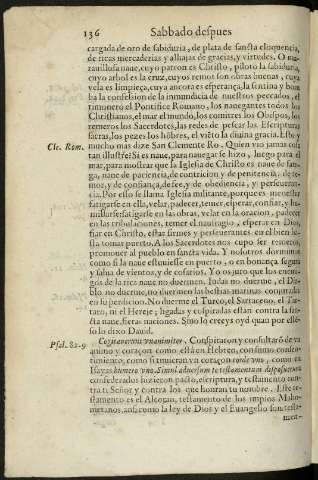 136 Sabbado despues
cargada de oro de sabiduria, de plata de sancta eloquencia,
de ricas mercaderias y alhajas de gracias, y virtudes. O ma-
rauillosa naue, cuyo patron es Christo, piloto la sabiduria,
cuyo arbol es la cruz, cuyos remos son obras buenas, cuya
vela es limpieça, cuya ancora es esperança, la sentina y bom
ba la confession de la inmundicia de nuestros peccados, el
timonero el Pontifice Romano, los nauegantes todos los
Christianos, el mar el mundo, los comitres los Obispos, los
remeros los Sacerdotes, las redes de pescar las Escripturas
sacras, los pezes los hõbres, el viẽto la diuina gracia. Esto y
Cle. Rom. mucho mas dize San Clemente Ro. Quien vio jamas cosa
tan illustre? Si es naue, para nauegar se hizo, luego para el
mar, para mostrar que la Iglesia de Christo es naue de san-
ga, naue de paciencia, de contricion y de penitencia, de te-
mor, y de confiança, de fee, y de obediencia, y perseueran-
cia. Por esso se llama Iglesia militante, porque es menester
fatigarse en ella, velar, padecer, temer, esperar, confiar, y hu-
millarse: fatigarse en las obras, velar en la oracion, padecer
en las tribulaciones, temer el naufragio, esperar en Dios,
fiar en Christo, estar firmes y perseuerantes en el bien has
sta tomar puerto. A los Sacerdotes nos cupo ser remeros,
promouer al pueblo en sancta vida. Y nosotros dormimos
como si la naue estuuiesse en puerto, o en bonança segura
y falta de vientos, y de cosarios. Yo os juro que los enemi-
gos de la rica naue no duermen. Iudas no duerme, el Dia-
blo no duerme, no duermen las bestias marinas conjuradas
en su perdicion. No duerme el Turco, el Sarraceno, el Tar-
taro, ni el Hereje, ligadas y conspiradas estan contra la san-
cta naue, fieras naciones. Sino lo creeys oyd quan por este-
so lo dixo Dauid.
Psal. 82. 9 Cogitauerunt vnanimiter. Conspiraron y consultarõ de vn
animo y coraçon, como està en Hebreo, con summo consen-
timiento, como si tuuieran vn coraçon corde vno, como en
Isayas humero vno. Simul aduersum te testamentum disposuerunt
confederados hizieron pacto, escriptura, y testamento con-
tra ti Señor y contra los que honran tu nombre. Este tes-
tamento es el Alcoran, testamento de los impios Maho-
metanos, assi como la ley de Dios y el Euangelio son testa-
men-